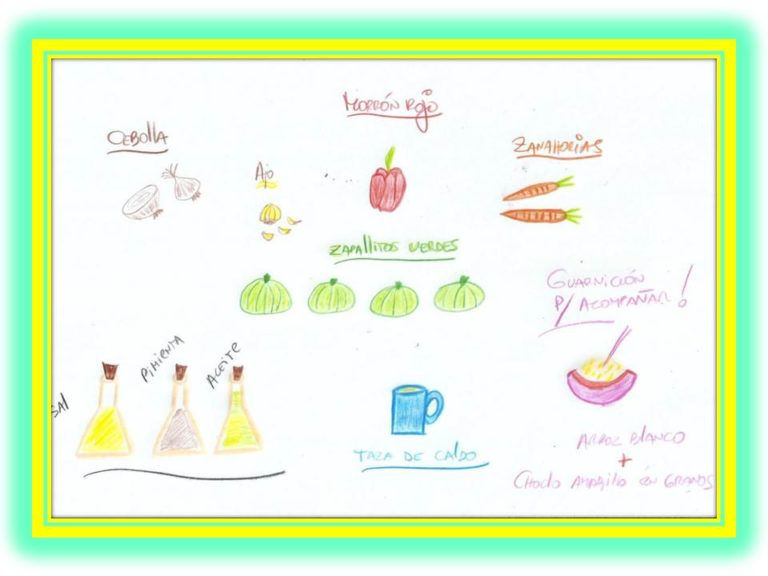 MORRÓN ROJO
CEBOLLA
AJO
ZANAHORIAS
ZAPALLITOS VERDES
GUARNICIÓN
P/ ACOMPAÑAR!
SAl
PIMIENTA
ACEITE
TAZA DE CAldO
ARROZ BLANCO
+
CHOClO AMARillO EN GRANOS